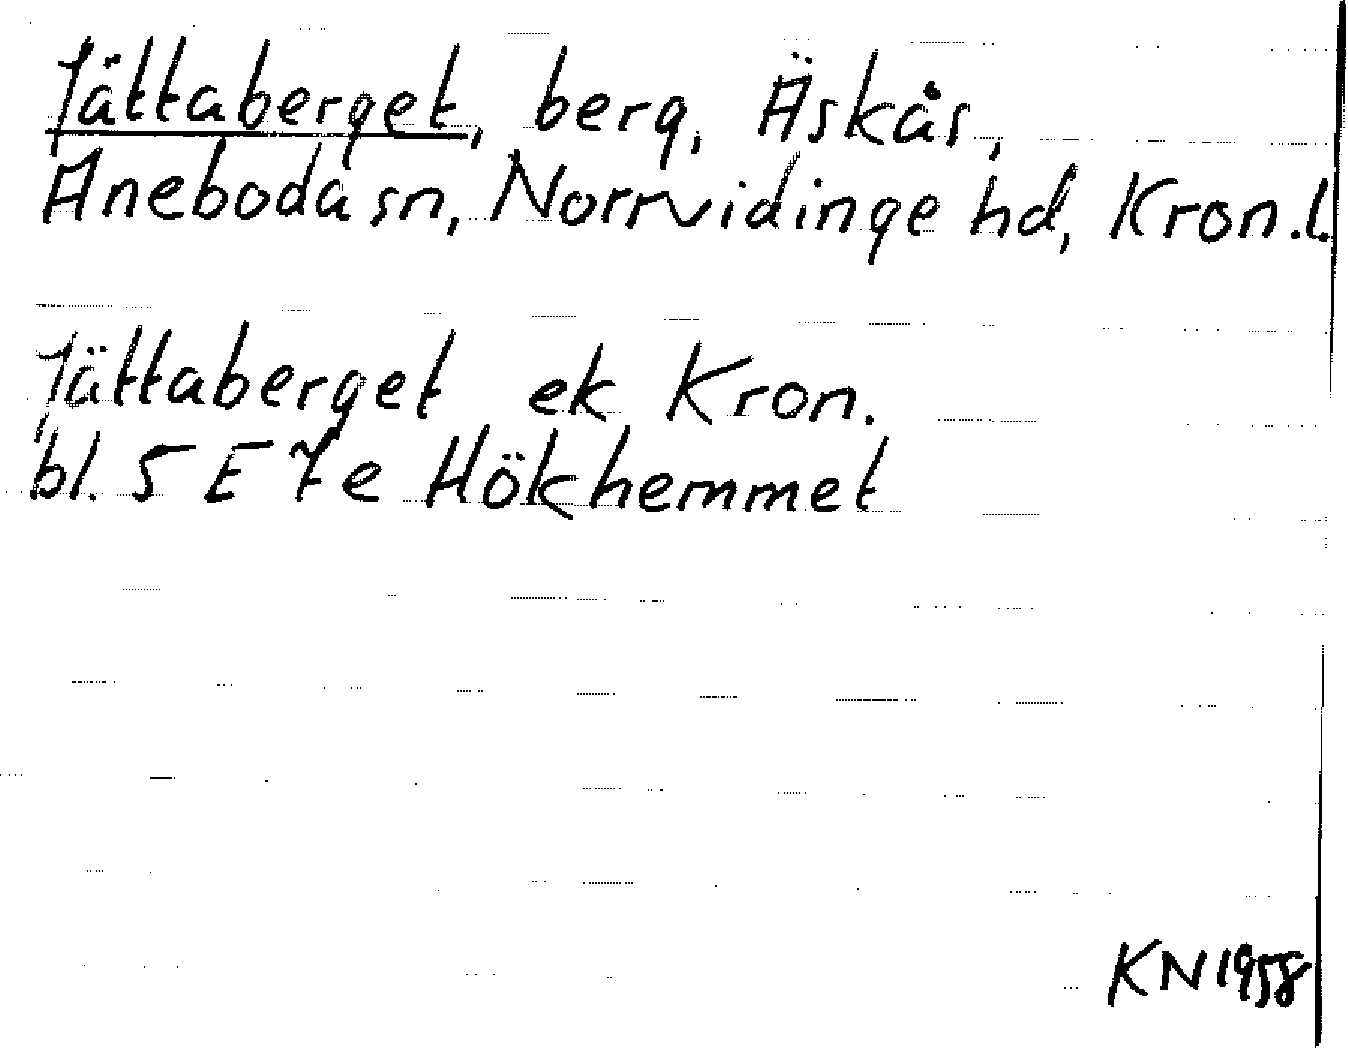 Jättaberget, berg, Äskås,
Aneboda sn, Norrvidinge hd, Kron.l.
Jättaberget ek Kron.
bl. 5 E 7 e Hökhemmet
KN 1958